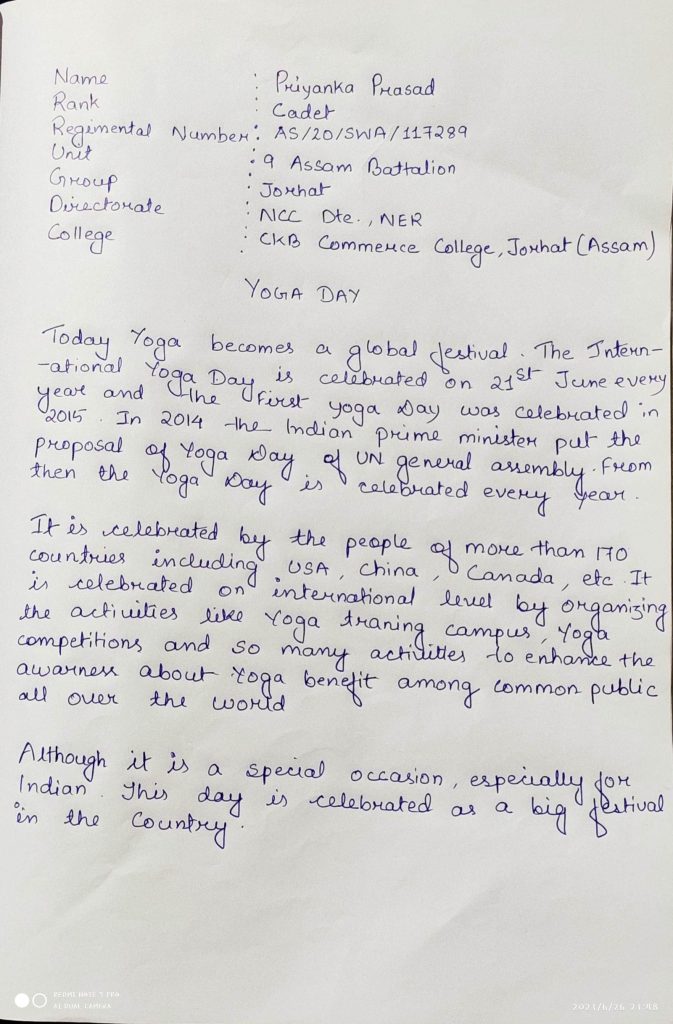 Name : Priyanka Prasad
Rank : Cadet
Regimental Number : AS/20/SWA/117289
Unit : 9 Assam Battalion
Group : Jorhat
Directorate : NCC Dte., NER
College : CKB Commerce College, Jorhat (Assam)
YOGA DAY
Today Yoga becomes a global festival. The Intern-
-ational Yoga Day is celebrated on 21st June every
year and the First yoga Day was celebrated in
2015. In 2014 the Indian prime minister put the
proposal of Yoga Day of UN general assembly. From
then the Yoga Day is celebrated every year.
It is celebrated by the people of more than 170
countries including USA, China, Canada, etc. It
is celebrated on international level by organizing
the activities like Yoga traning campus, Yoga
competitions and so many activities to enhance the
awarness about Yoga benefit among common public
all over the world
Although it is a special occasion, especially for
Indian. This day is celebrated as a big festival
in the Country.
REDMI NOTE 7 PRO
AI DUAL CAMERA
2021/6/26 21:48